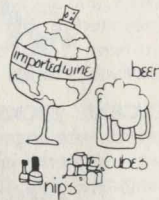 imported wine
beer
cubes
nips